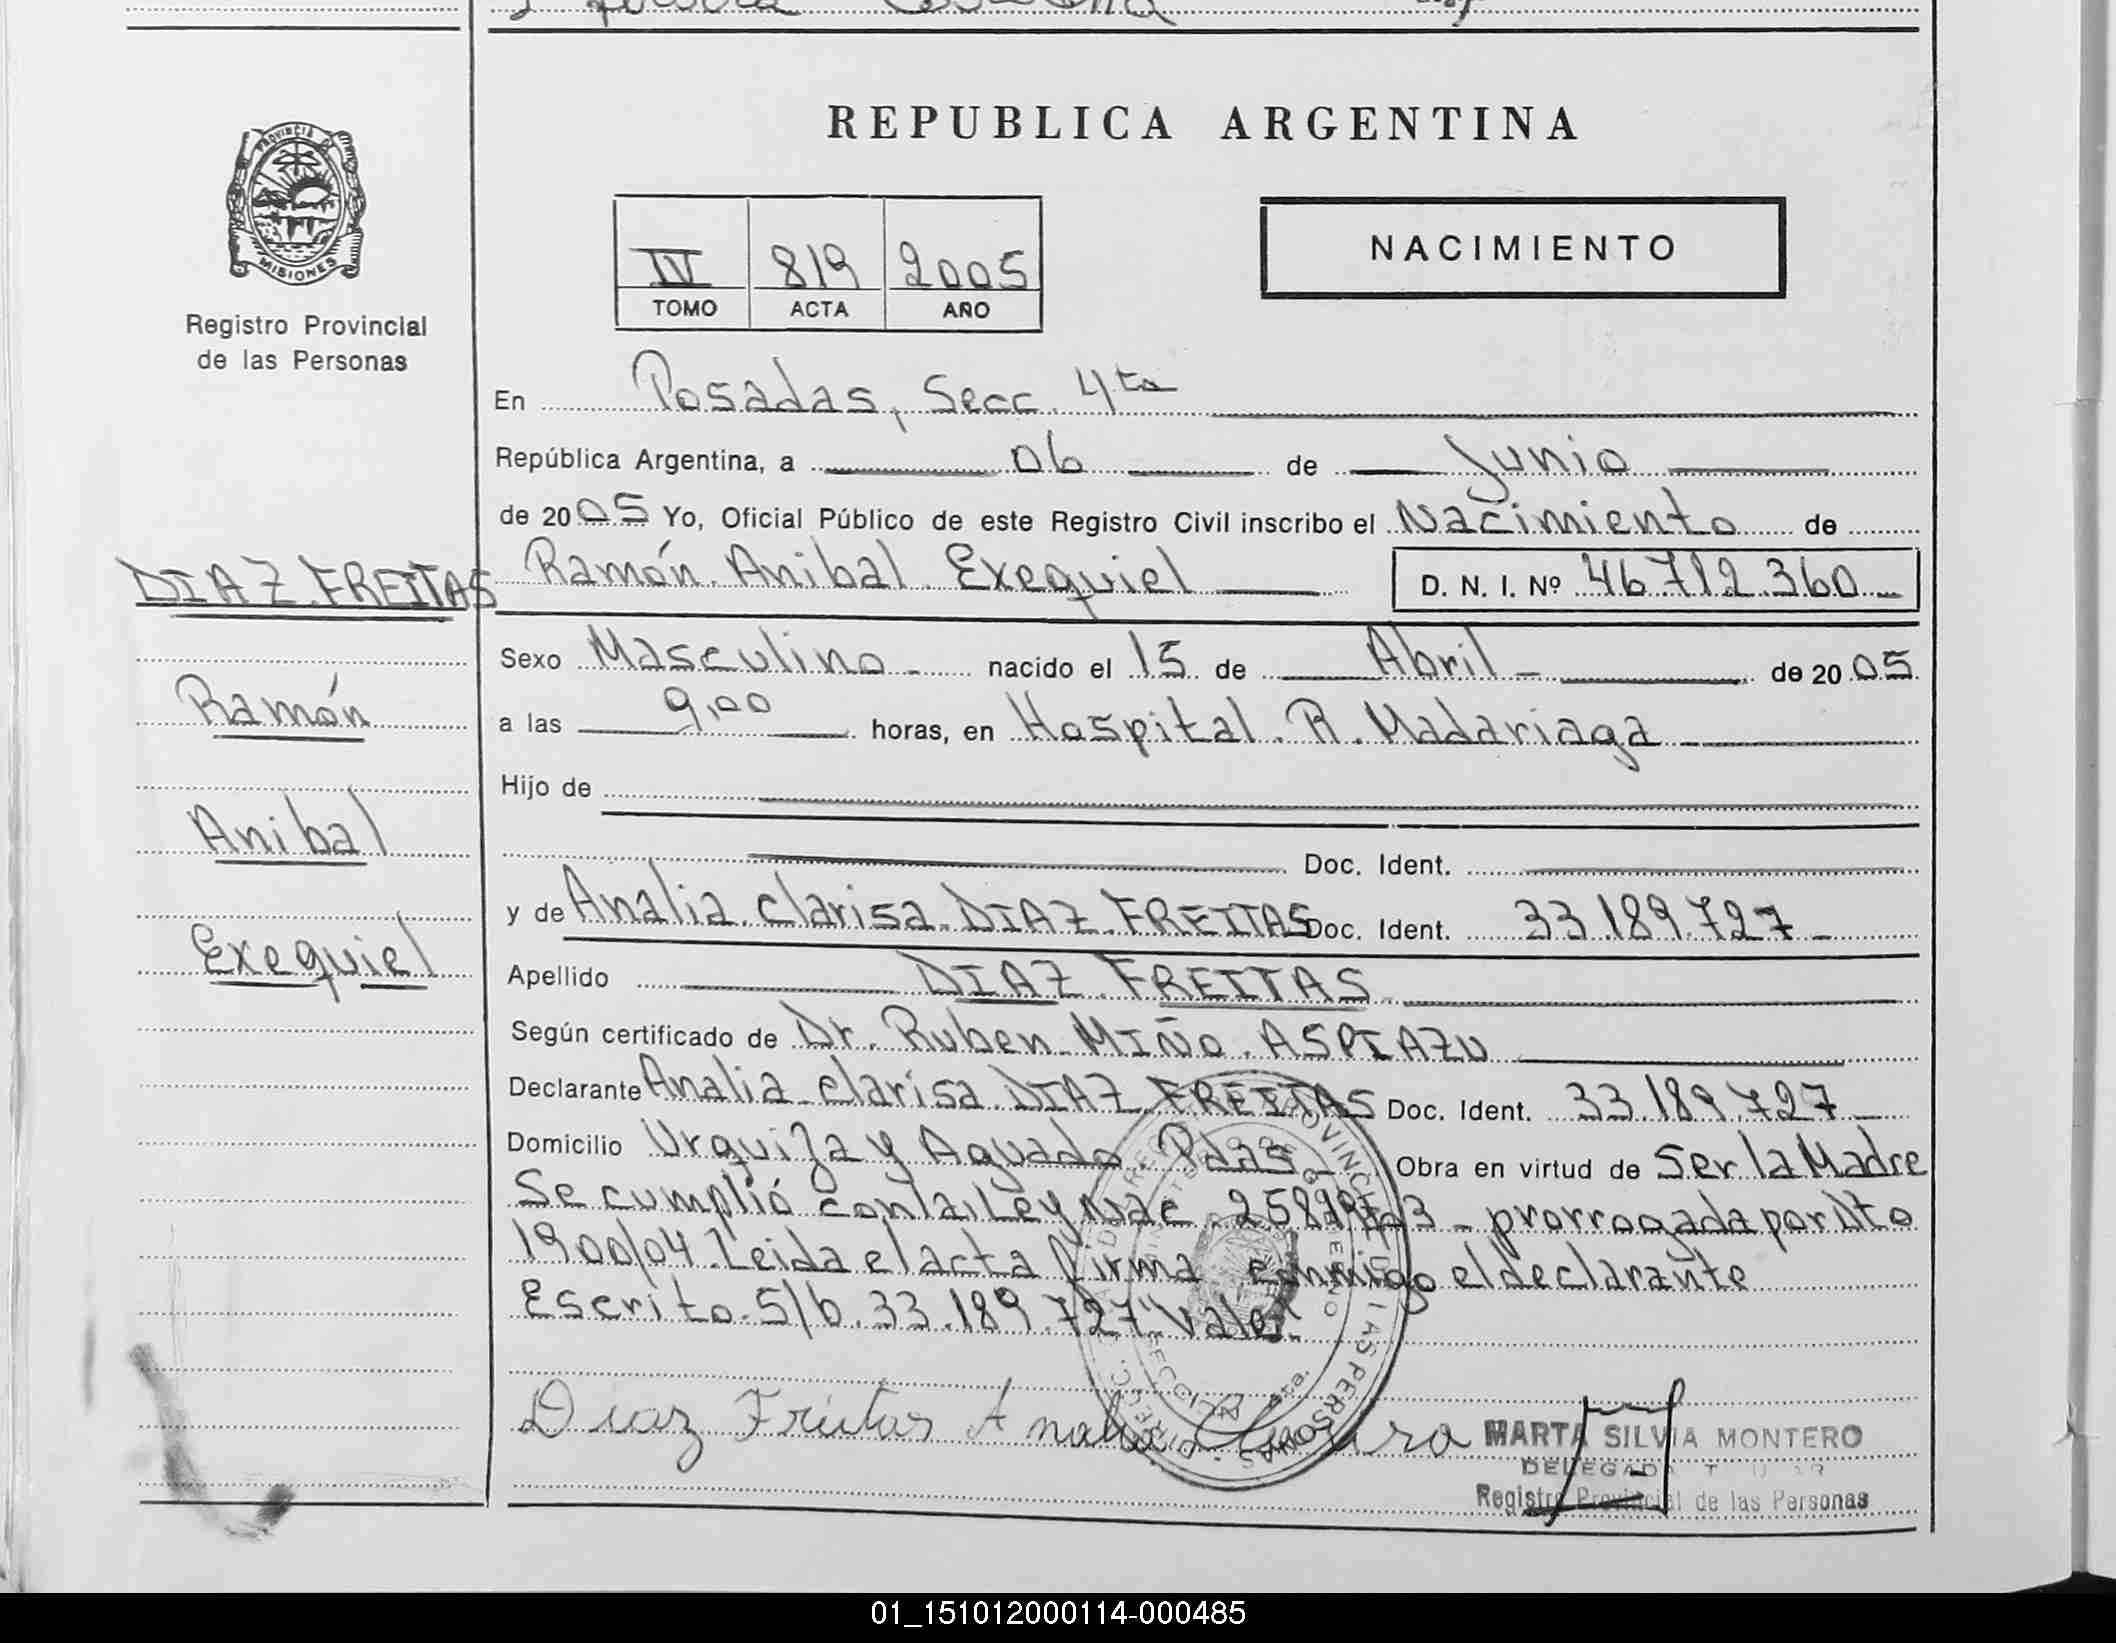 REPUBLICA ARGENTINA
PROVINCIA DE MISIONES
Registro Provincial
de las Personas
IV 819 2005
TOMO ACTA AÑO
NACIMIENTO
En Posadas, Secc. 4ta
República Argentina, a 06 de Junio
de 2005 Yo, Oficial Público de este Registro Civil inscribo el Nacimiento de
DIAZ FREITAS
Ramón
Anibal
Exequiel
Ramón Anibal Exequiel D. N. I. Nº 46.712.360
Sexo Masculino nacido el 15 de Abril de 2005
a las 9,00 horas, en Hospital R. Madariaga
Hijo de
Doc. Ident.
y de Analia Clarisa DIAZ FREITAS Doc. Ident. 33.189.727
Apellido DIAZ FREITAS
Según certificado de Dr. Ruben MIÑO ASPIAZU
Declarante Analia Clarisa DIAZ FREITAS Doc. Ident. 33.189.727
Domicilio Urquiza y Aguado Pdas Obra en virtud de Ser la Madre
Se cumplió con la Ley Nac. prorrogada por Dto
1900/04. Leida el acta firma conmigo el declarante
Escrito S/b. 33.189.727 "Vale"
Diaz Freitas Analia
MARTA SILVIA MONTERO
DELEGADA
Registro Provincial de las Personas
01_151012000114-000485